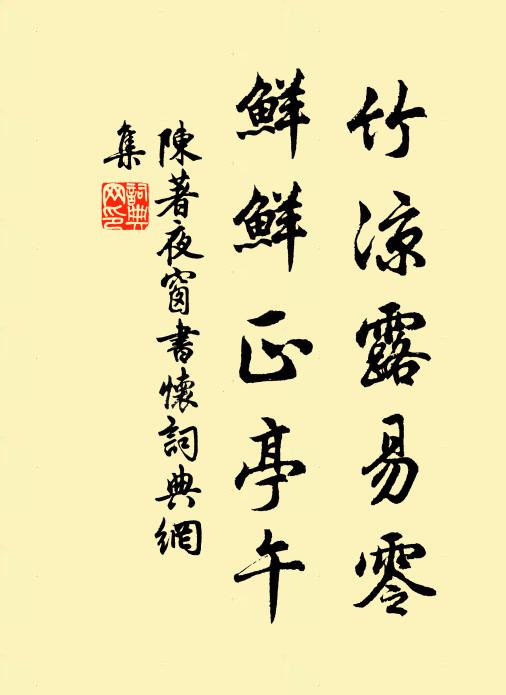 竹涼露易零
鮮鮮正亭午
陳著夜窗書懷詞典網
集
詞典
网印